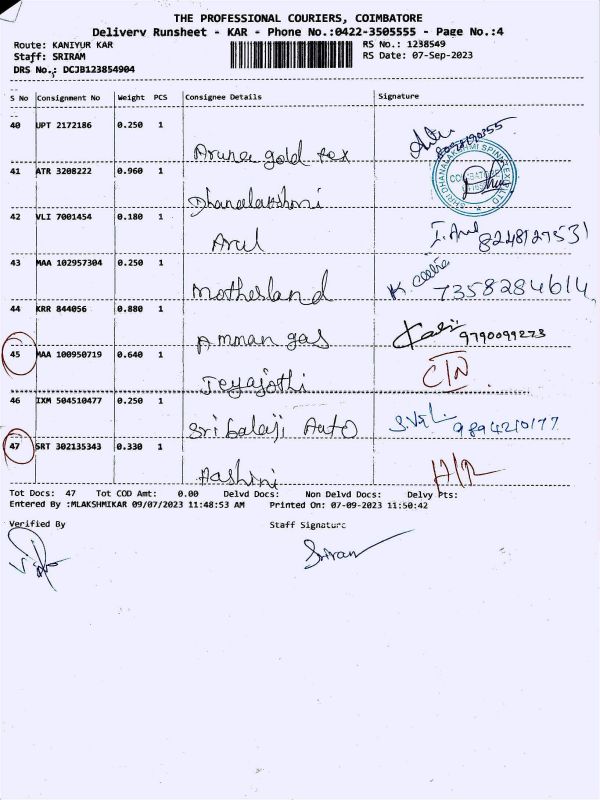 THE PROFESSIONAL COURIERS, COIMBATORE
Delivery Runsheet - KAR - Phone No.:0422-3505555 - Page No.:4
Route: KANIYUR KAR
RS No.: 1238549
Staff: SRIRAM
RS Date: 07-Sep-2023
DRS No.: DCJB123854904
S No Consignment No Weight PCS Consignee Details Signature
40 UPT 2172186 0.250 1
Aruna gold tex
41 ATR 3208222 0.960 1
Dhanalakshmi
42 VLI 7001454 0.180 1
Arul
I. Arul 8248127531
43 MAA 102957304 0.250 1
Motherland
7358284614
44 KRR 844056 0.880 1
Amman gas
9790099273
45 MAA 100950719 0.640 1
Jeyajothi
46 IXM 504510477 0.250 1
Sri balaji Auto
9894210177
47 SRT 302135343 0.330 1
Aashini
Tot Docs: 47 Tot COD Amt: 0.00 Delvd Docs: Non Delvd Docs: Delvy Pts:
Entered By :MLAKSHMIKAR 09/07/2023 11:48:53 AM Printed On: 07-09-2023 11:50:42
Verified By Staff Signature
Sriram